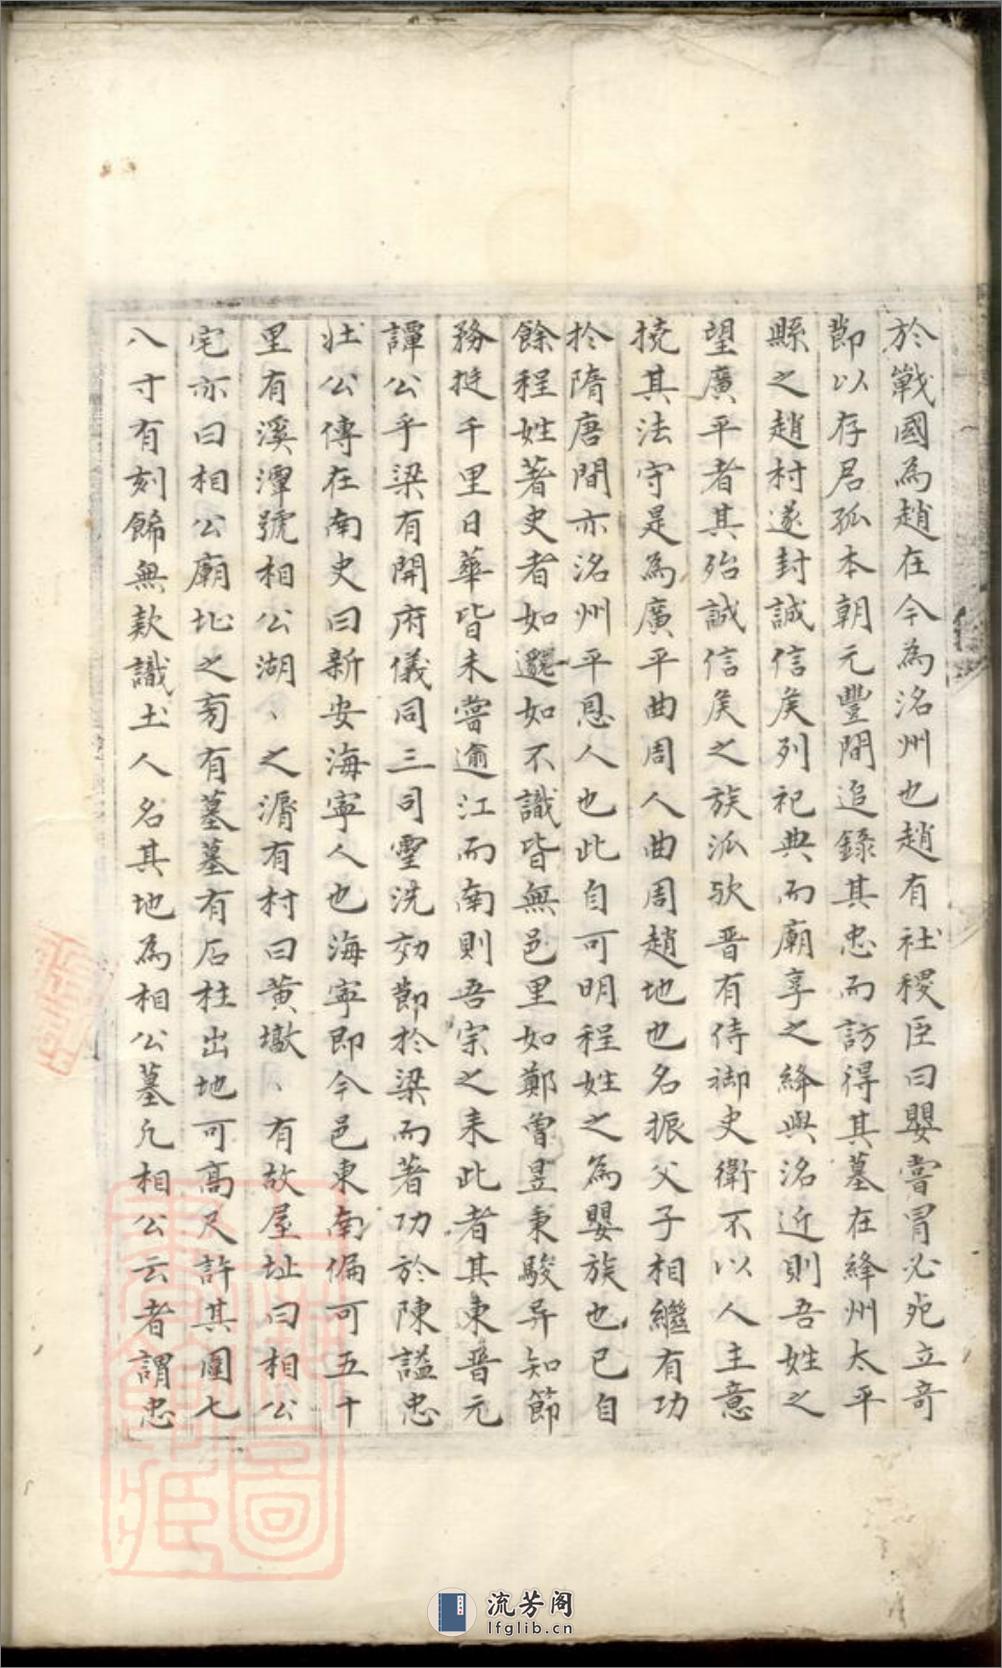 於戰國為趙在今為洺州也趙有社稷臣曰嬰嘗冒必死立竒
節以存君孤本朝元豐間追錄其忠而訪得其墓在絳州太平
縣之趙村遂封誠信矦列祀典而廟享之絳與洺近則吾姓之
望廣平者其殆誠信矦之族派欤晋有侍御史衛不以人主意
撓其法守是為廣平曲周人曲周趙地也名振父子相繼有功
扵隋唐間亦洺州平恩人也此自可明程姓之為嬰族也已自
餘程姓著史者如邈如不識皆無邑里如鄭曾昱秉駿异知節
務挺千里日華皆未嘗逾江而南則吾宗之来此者其東晋元
譚公乎梁有開府儀同三司霊洗効節扵梁而著功於陳謚忠
壮公傳在南史曰新安海寧人也海寧即今邑東南偏可五十
里有溪潭號相公湖、之漘有村曰黄墩、有故屋址曰相公
宅亦曰相公廟址之旁有墓墓有石柱出地可高尺許其圍七
八寸有刻餙無欵識土人名其地為相公墓凢相公云者謂忠
流芳阁
lfglib.cn